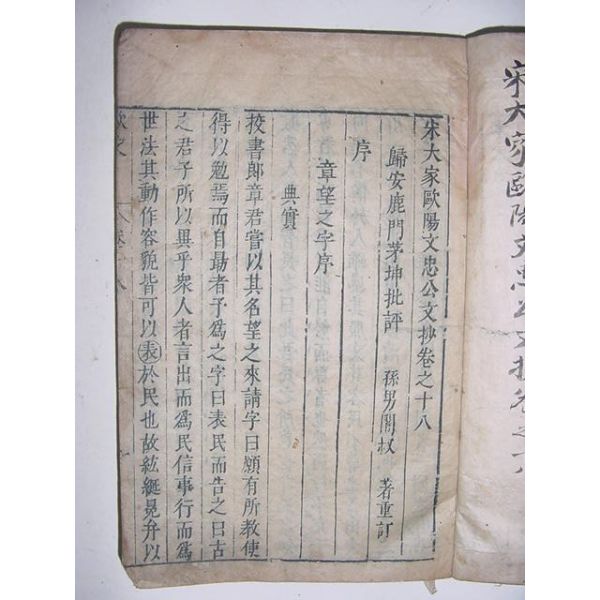 宋大家歐陽文忠公文抄卷之十八
宋大家歐陽文忠公文抄卷之十八
歸安鹿門茅坤批評 孫男闇叔 著重訂
序
章望之字序
典實
挍書郎章君嘗以其名望之來請字曰願有所教使
得以勉焉而自勗者予爲之字曰表民而告之曰古
之君子所以異乎衆人者言出而爲民信事行而爲
世法其動作容貌皆可以表於民也故紘綖冕弁以
歐文 卷十八